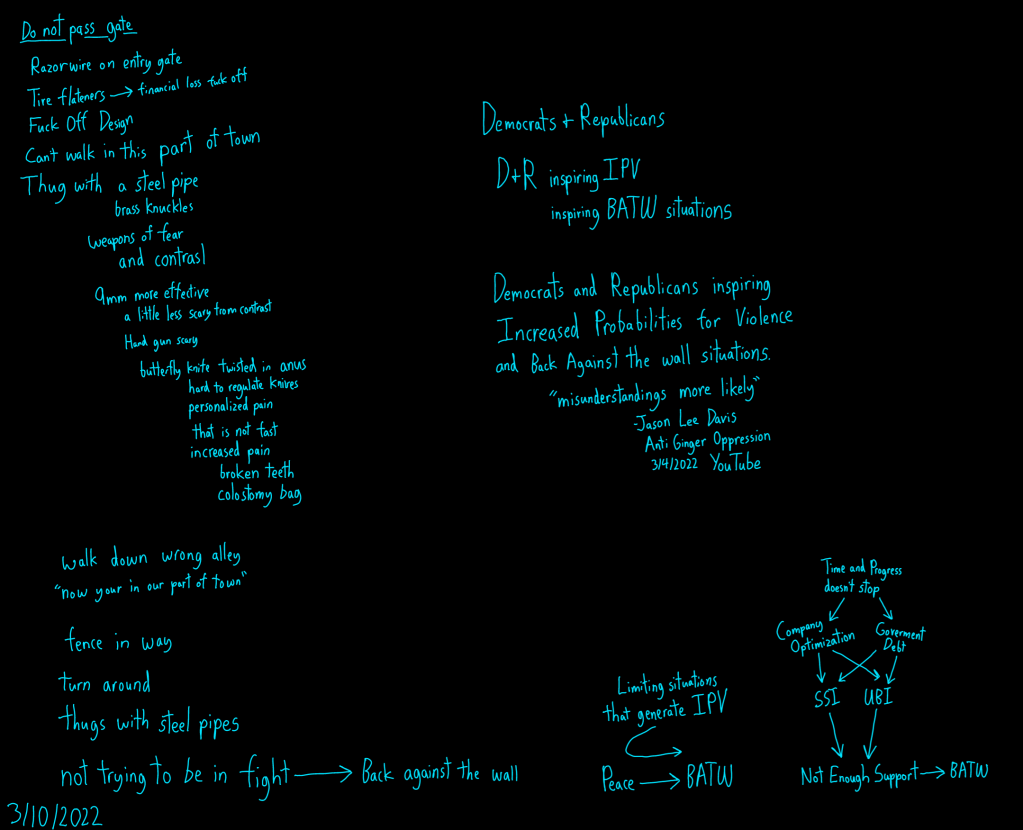 Do not pass gate
Razorwire on entry gate
Tire flateners → financial loss fuck off
Fuck Off Design
Can't walk in this part of town
Thug with a steel pipe
brass knuckles
weapons of fear
and contrast
9mm more effective
a little less scary from contrast
Hand gun scary
butterfly knife twisted in anus
hard to regulate knives
personalized pain
that is not fast
increased pain
broken teeth
colostomy bag
walk down wrong alley
"now your in our part of town"
fence in way
turn around
thugs with steel pipes
not trying to be in fight → Back against the wall
3/10/2022
Democrats + Republicans
D+R inspiring IPV
inspiring BATW situations
Democrats and Republicans inspiring
Increased Probabilities for Violence
and Back Against the wall situations.
"misunderstandings more likely"
-Jason Lee Davis
Anti Ginger Oppression
3/4/2022 YouTube
Limiting situations
that generate IPV
Peace → BATW
Time and Progress
doesn't stop
Company
Optimization
Goverment
Debt
SSI
UBI
Not Enough Support → BATW